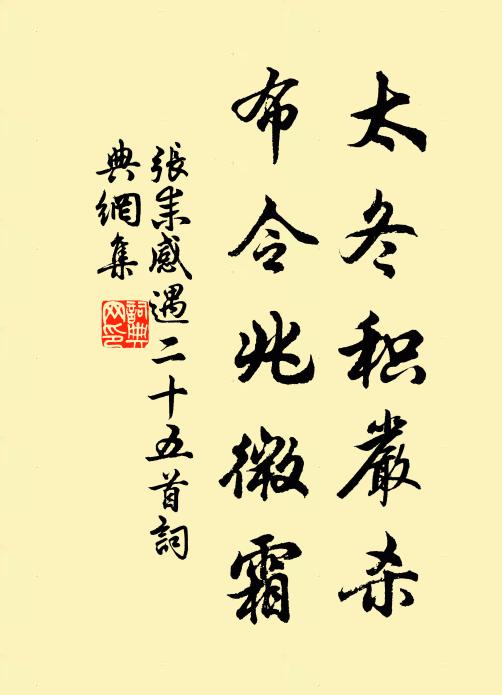 太冬积嚴杀
布令兆微霜
張耒感遇二十五首詞
典網集
詞典网印